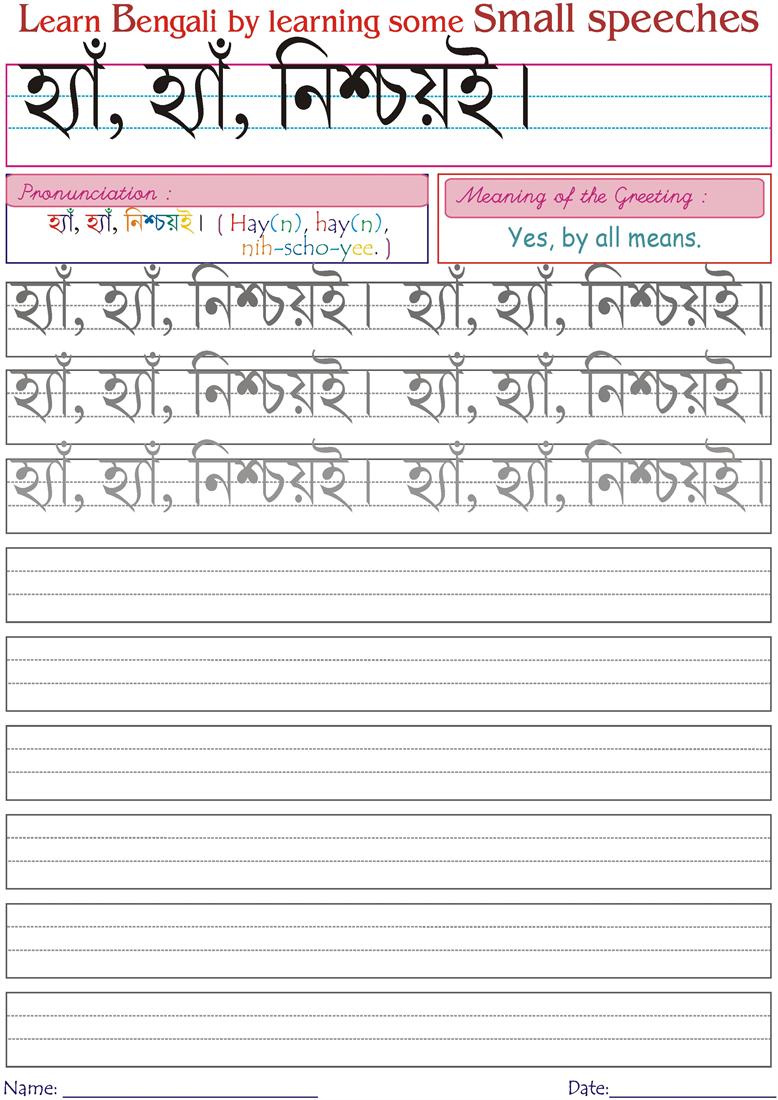 Learn Bengali by learning some Small speeches
হ্যাঁ, হ্যাঁ, নিশ্চয়ই।
Pronunciation :
হ্যাঁ, হ্যাঁ, নিশ্চয়ই। ( Hay(n), hay(n),
nih-scho-yee. )
Meaning of the Greeting :
Yes, by all means.
হ্যাঁ, হ্যাঁ, নিশ্চয়ই। হ্যাঁ, হ্যাঁ, নিশ্চয়ই।
হ্যাঁ, হ্যাঁ, নিশ্চয়ই। হ্যাঁ, হ্যাঁ, নিশ্চয়ই।
হ্যাঁ, হ্যাঁ, নিশ্চয়ই। হ্যাঁ, হ্যাঁ, নিশ্চয়ই।
Name: Date: